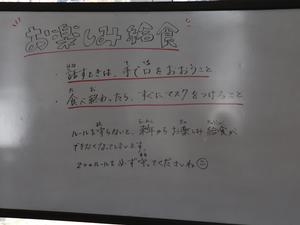 お楽しみ給食
・話すときは、手で口をおおうこと
・食べ終わったら、すぐにマスクをつけること
ルールを守らないと、来月からお楽しみ給食が
できなくなってしまいます。
2つのルールを必ず守ってくださいね